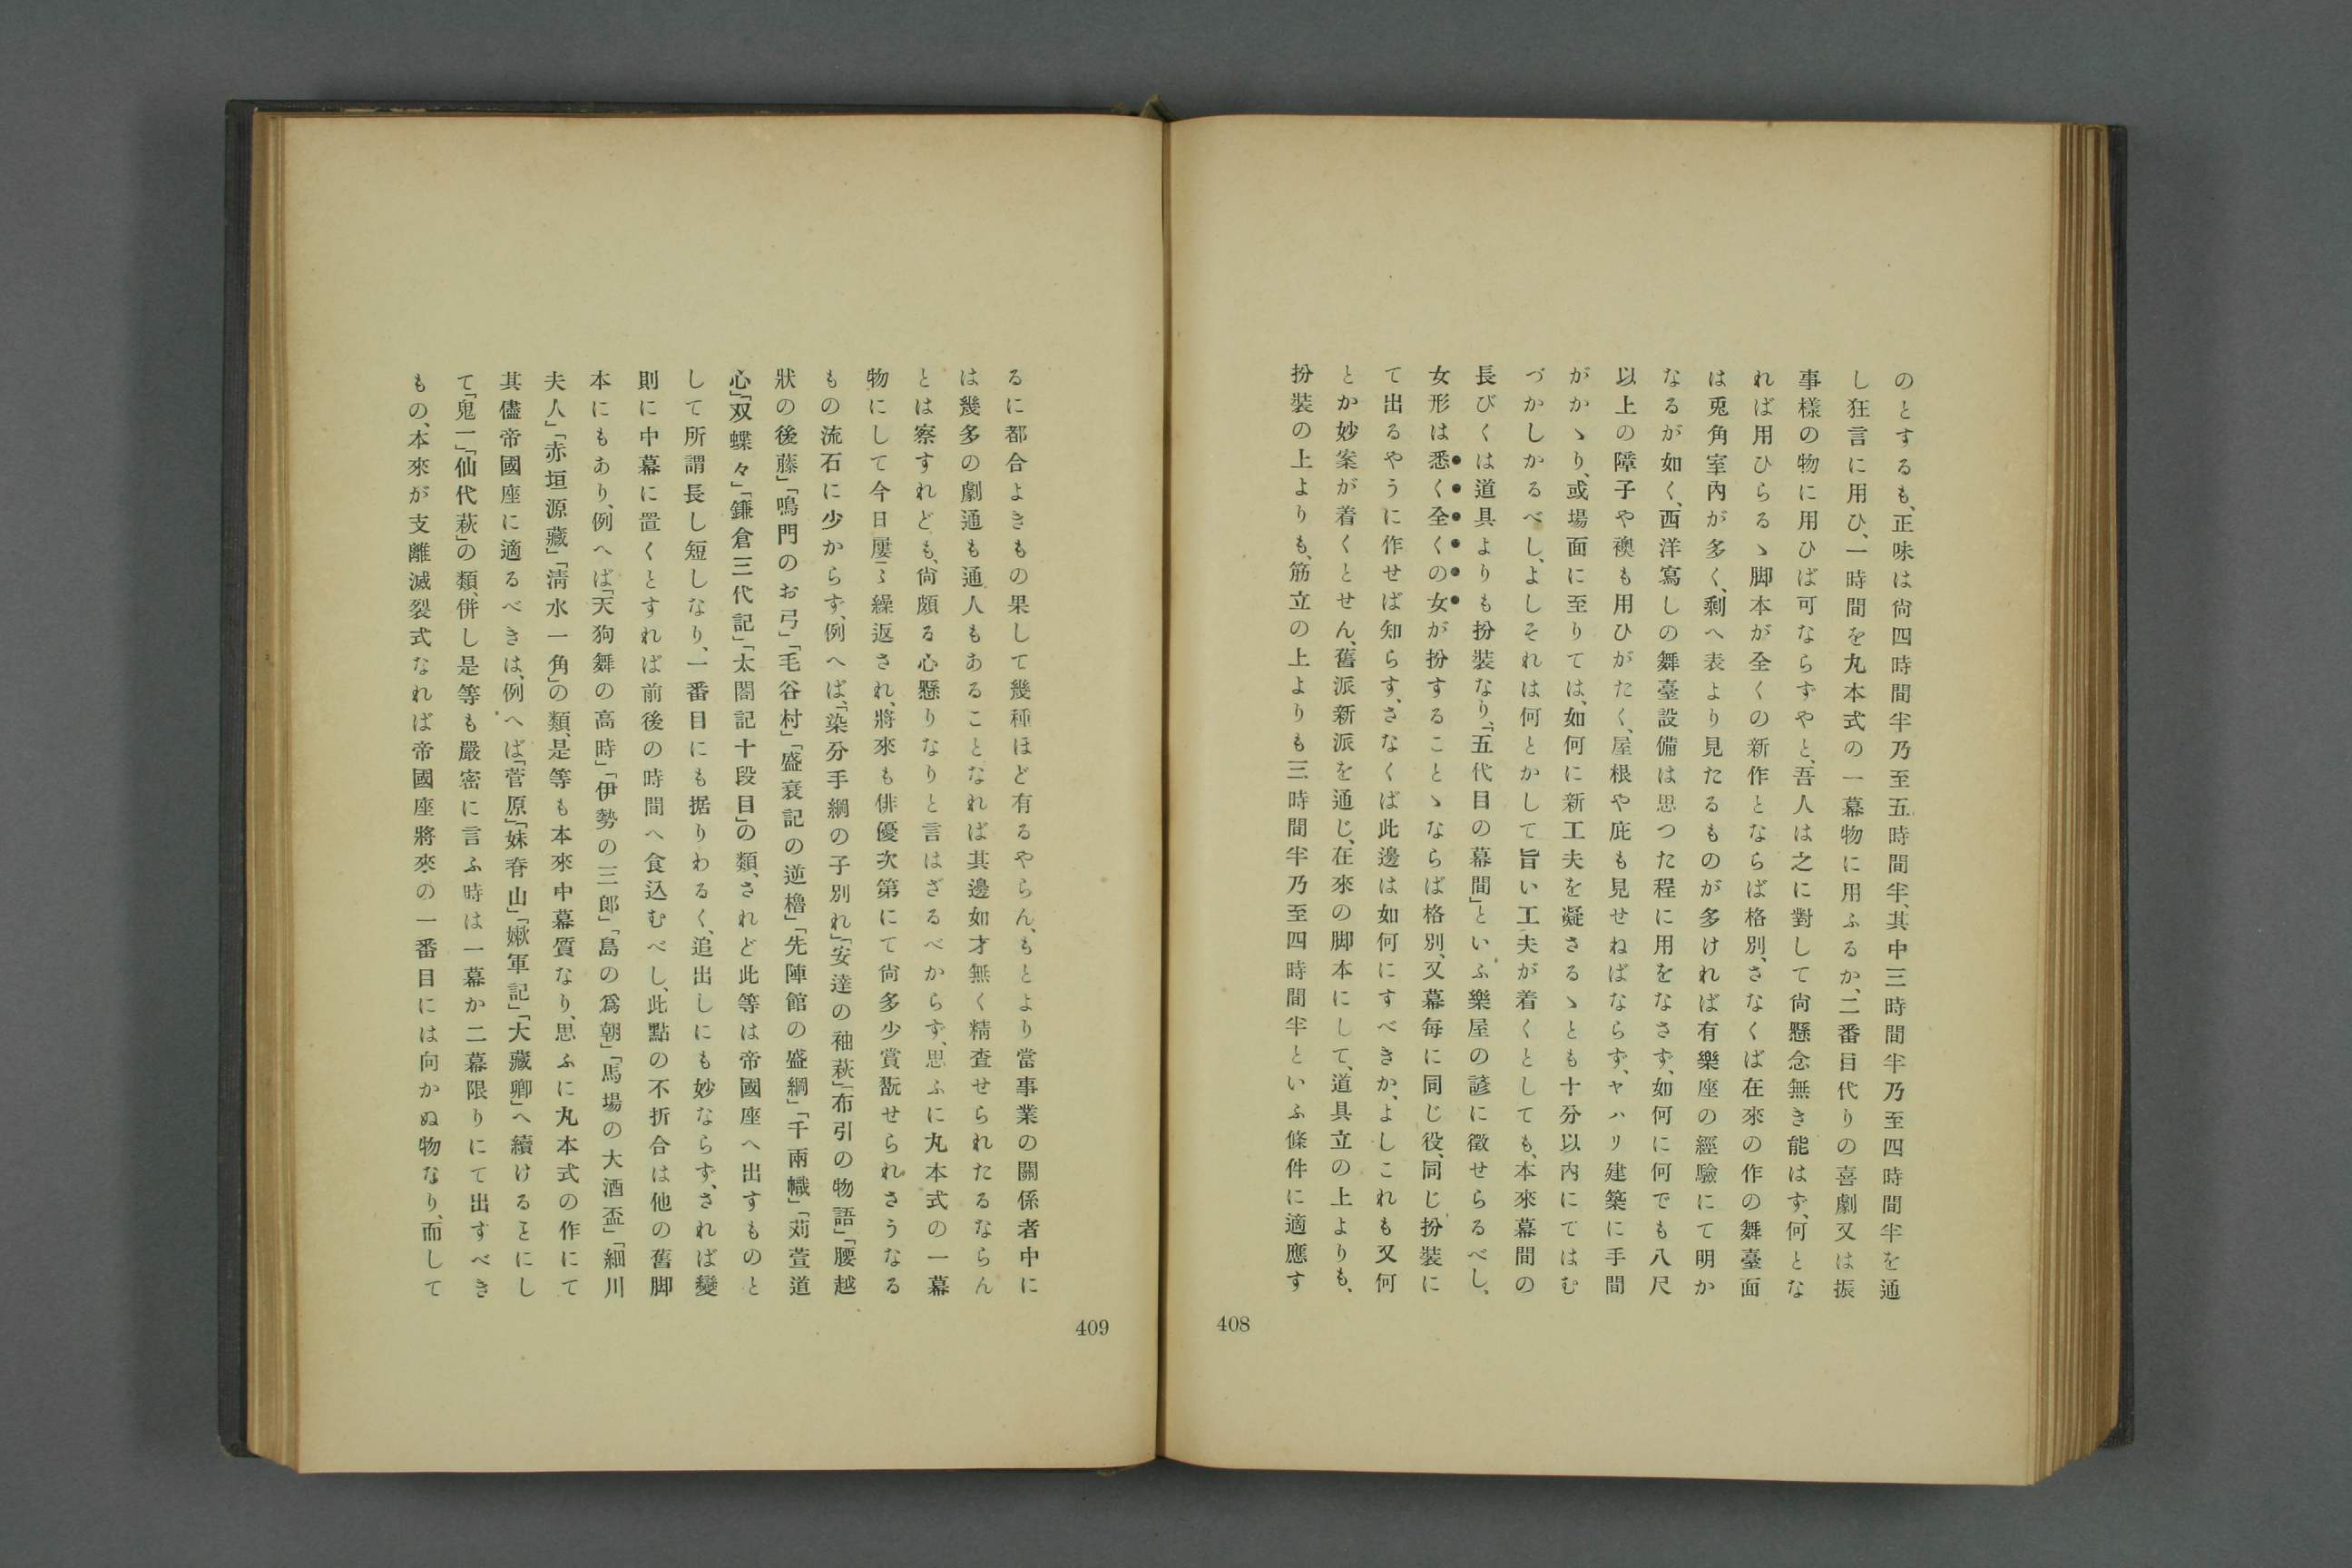 のとするも、正味は尙四時間半乃至五時間半、其中三時間半乃至四時間半を通
し狂言に用ひ、一時間を丸本式の一幕物に用ふるか、二番目代りの喜劇又は振
事樣の物に用ひば可ならずやと、吾人は之に對して尙懸念無き能はず、何とな
れば用ひらるゝ脚本が全くの新作とならば格別、さなくば在來の作の舞臺面
は兎角室內が多く、剩へ表より見たるものが多ければ有樂座の經驗にて明か
なるが如く、西洋寫しの舞臺設備は思つた程に用をなさず、如何に何でも八尺
以上の障子や襖も用ひがたく、屋根や庇も見せねばならず、ヤハリ建築に手間
がかゝり、或場面に至りては、如何に新工夫を凝さるゝとも十分以內にてはむ
づかしかるべし、よしそれは何とかして旨い工夫が着くとしても、本來幕間の
長びくは道具よりも扮裝なり、「五代目の幕間」といふ樂屋の諺に徵せらるべし、
女形は悉く全くの女が扮することゝならば格別、又幕每に同じ役、同じ扮裝に
て出るやうに作せば知らす、さなくば此邊は如何にすべきか、よしこれも又何
とか妙案が着くとせん、舊派新派を通じ、在來の脚本にして、道具立の上よりも、
扮裝の上よりも、筋立の上よりも三時間半乃至四時間半といふ條件に適應す
408
るに都合よきもの果して幾種ほど有るやらん、もとより當事業の關係者中に
は幾多の劇通も通人もあることなれば其邊如才無く精査せられたるならん
とは察すれども、尙頗る心懸りなりと言はざるべからず、思ふに丸本式の一幕
物にして今日屢〻繰返され、將來も俳優次第にて尙多少賞翫せられさうなる
もの流石に少からず、例へば、「染分手綱の子別れ」「安達の袖萩」「布引の物語」「腰越
狀の後藤」「鳴門のお弓」「毛谷村」「盛衰記の逆櫓」「先陣館の盛綱」「千兩幟」「苅萱道
心」「双蝶々」「鎌倉三代記」「太閤記十段目」の類、されど此等は帝國座へ出すものと
して所謂長し短しなり、一番目にも据りわるく、追出しにも妙ならず、されば變
則に中幕に置くとすれば前後の時間へ食込むべし、此點の不折合は他の舊脚
本にもあり、例へば「天狗舞の高時」「伊勢の三郞」「島の爲朝」「馬場の大酒盃」「細川
夫人」「赤垣源藏」「淸水一角」の類、是等も本來中幕質なり、思ふに丸本式の作にて
其儘帝國座に適るべきは、例へば「菅原」「妹脊山」「嫩軍記」「大藏卿」へ續けるとにし
て「鬼一」「仙代萩」の類、併し是等も嚴密に言ふ時は一幕か二幕限りにて出すべき
もの、本來が支離滅裂式なれば帝國座將來の一番目には向かぬ物なり、而して
409